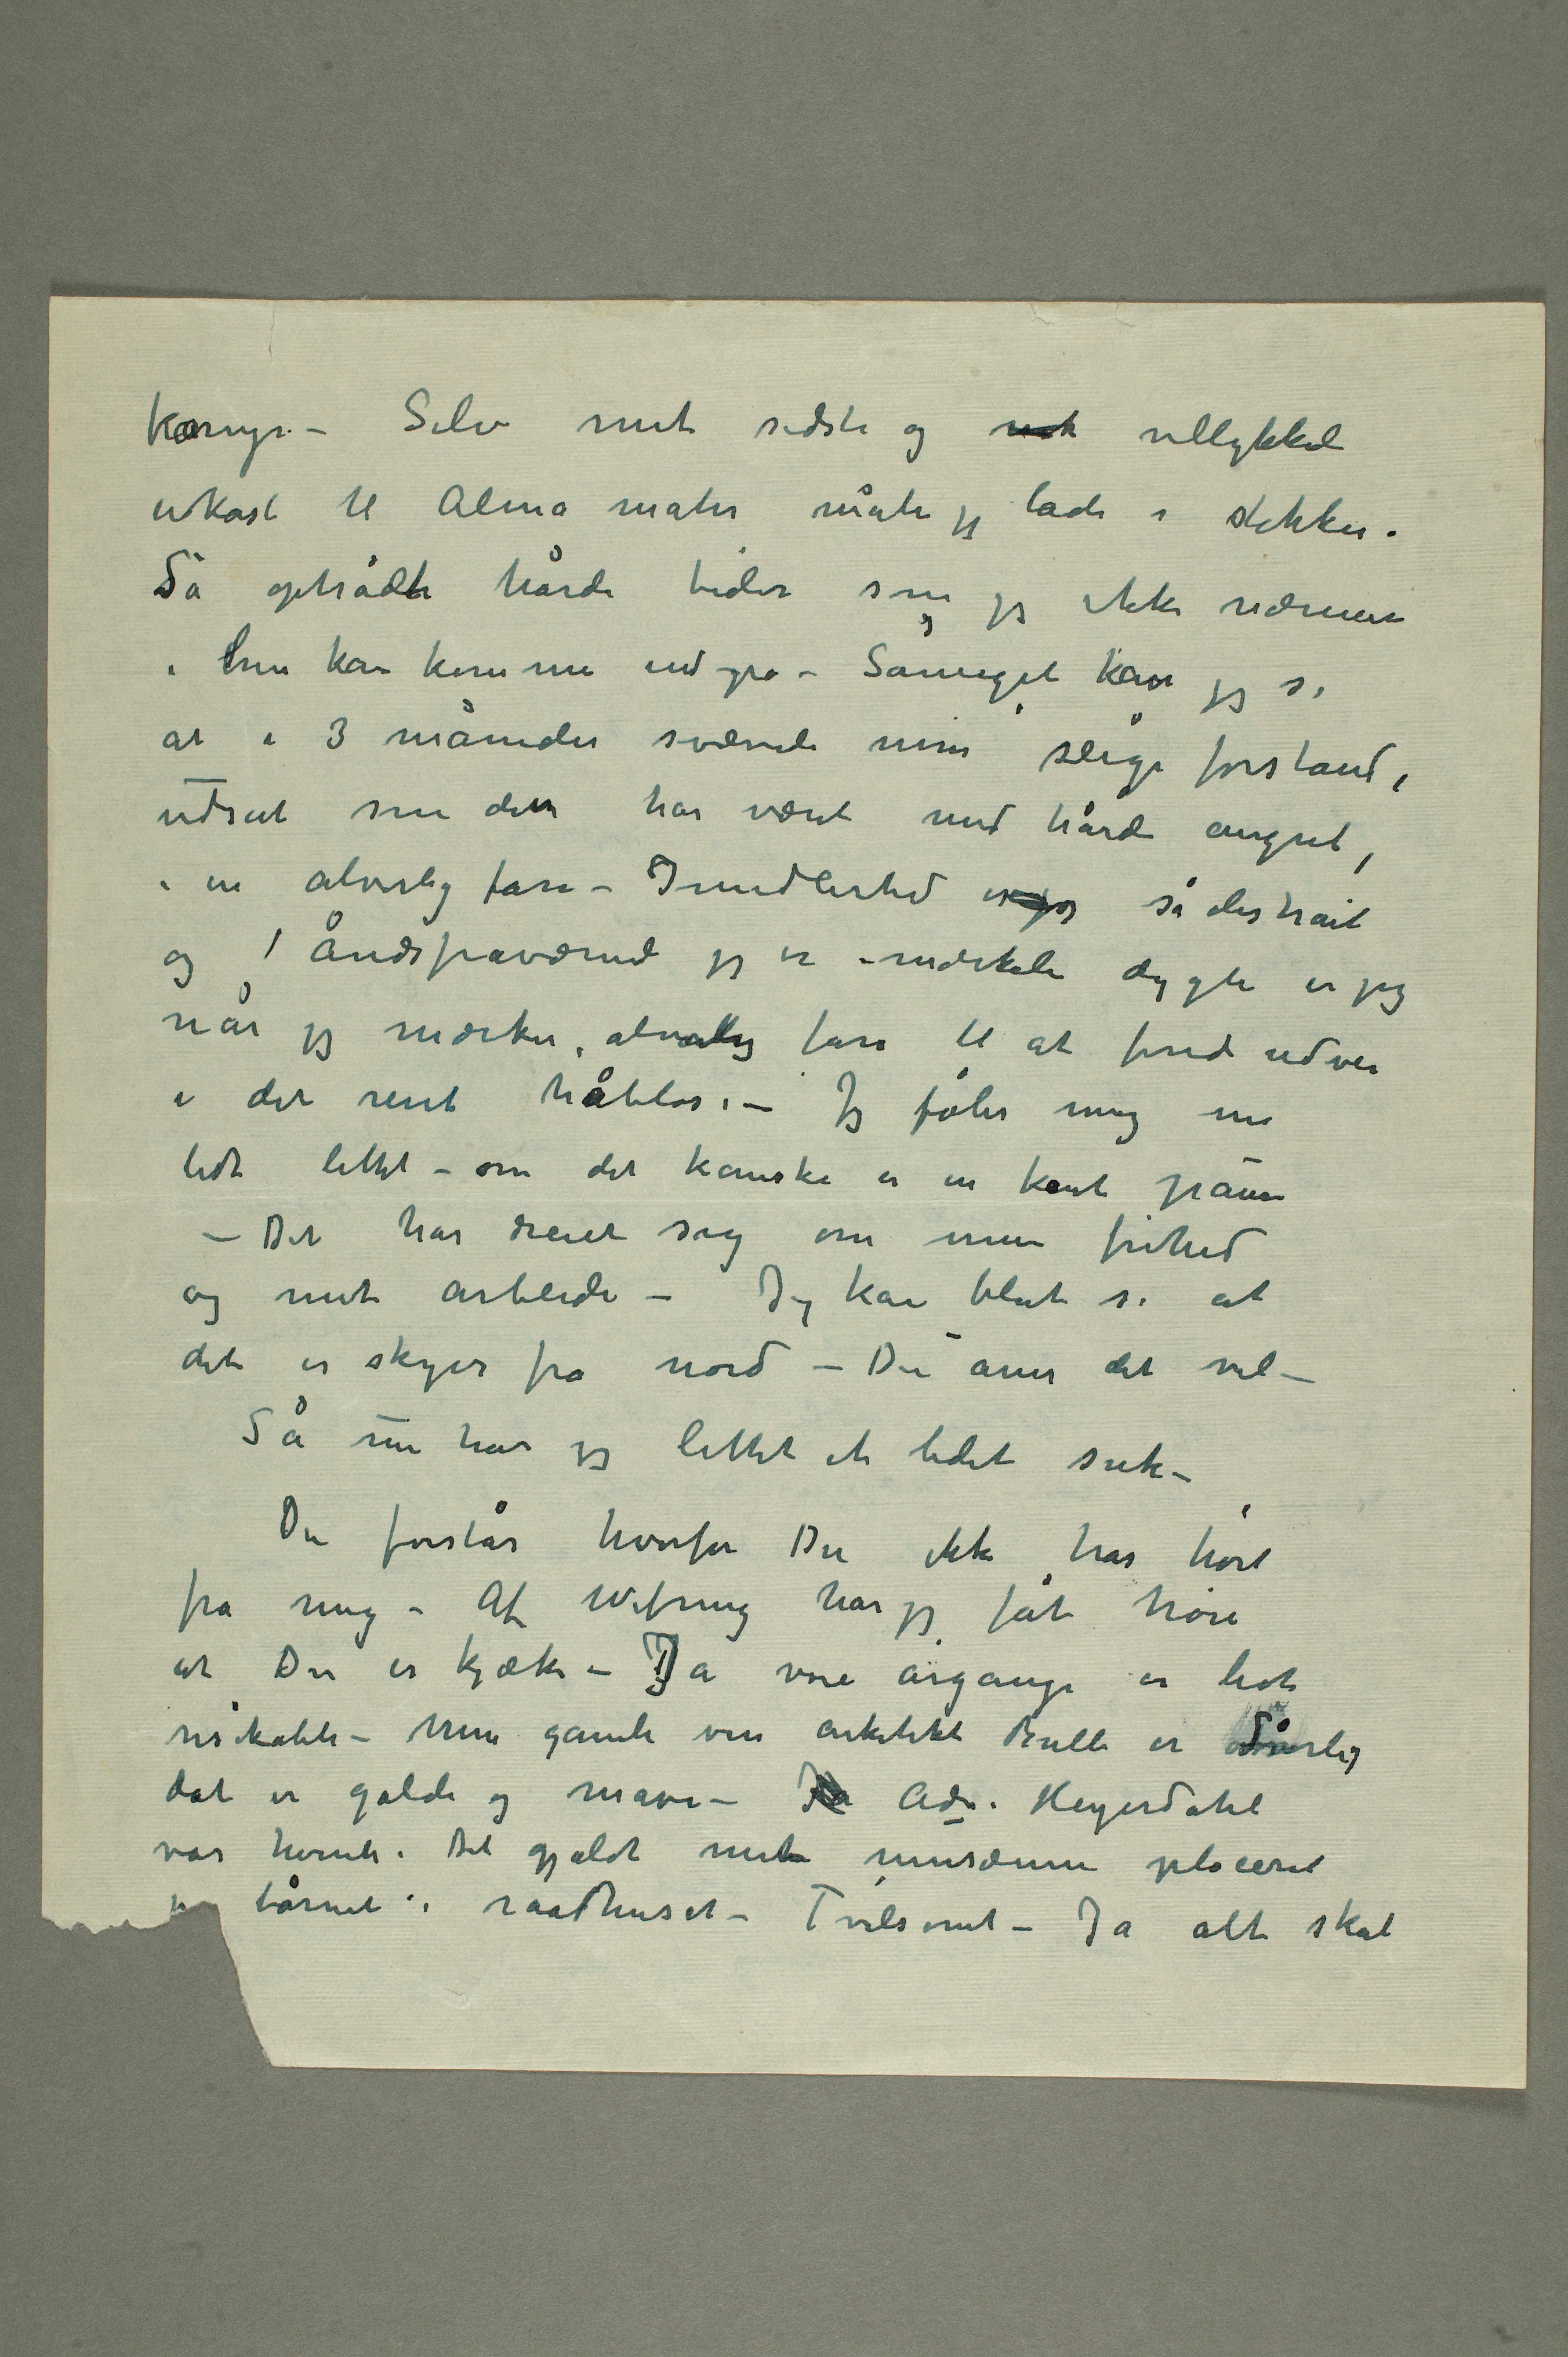 kampe – Selv mit sidste og vellykkede
utkast til Alma mater måtte jeg lade i stikken.
Så optrådte hårde tider som jeg ikke nærmere
i brev kan komme ind på – Såmeget kan jeg si
at i 3 måneder svævede min sålige forstand,
udsat som den har været med hårde angreb,
i en alvorlig fare – Imidlertid så distrait
og åndsfraværende jeg er – mærkelig dygtig er jeg
når jeg mærker alvorlig fare til at finde udvei
i det rent håbløse – Jeg føler mig nu
lidt lettet – om det kanske er en kort pause
– Det har dreiet sig om min frihed
og mit arbeide – Jeg kan blot si at
det er skyer fra nord – Du aner det vel –
Så nu har jeg lettet et lidet suk –
Du forstår hvorfor Du ikke har hørt
fra mig – Af Wefring har jeg fåt høre
at Du er kjæk – Ja vore årgange er lidt
risikable – Min gamle ven arkitekt Bull er dårlig
det er galde og mave – Adv. Heyerdahl
var hernede. Det gjaldt mit musæum placeret
på tårnet i raadhuset – Tvilsomt – Ja alt skal